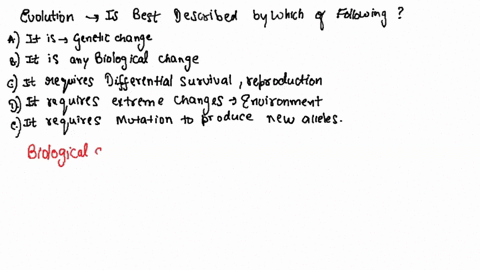 Evolution → Is Best Described by Which of Following ?
A) It is → Genetic change
B) It is any Biological change
C) It requires Differential Survival, reproduction
D) It requires extreme changes → Environment
E) It requires Mutation to produce new alleles.
Biological c